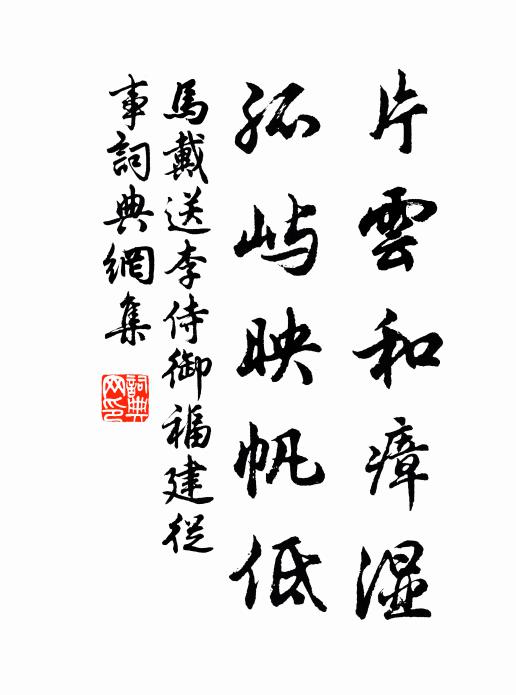 片雲和瘴湿
孤屿映帆低
馬戴送李侍御福建從
事詞典網集
詞典网印